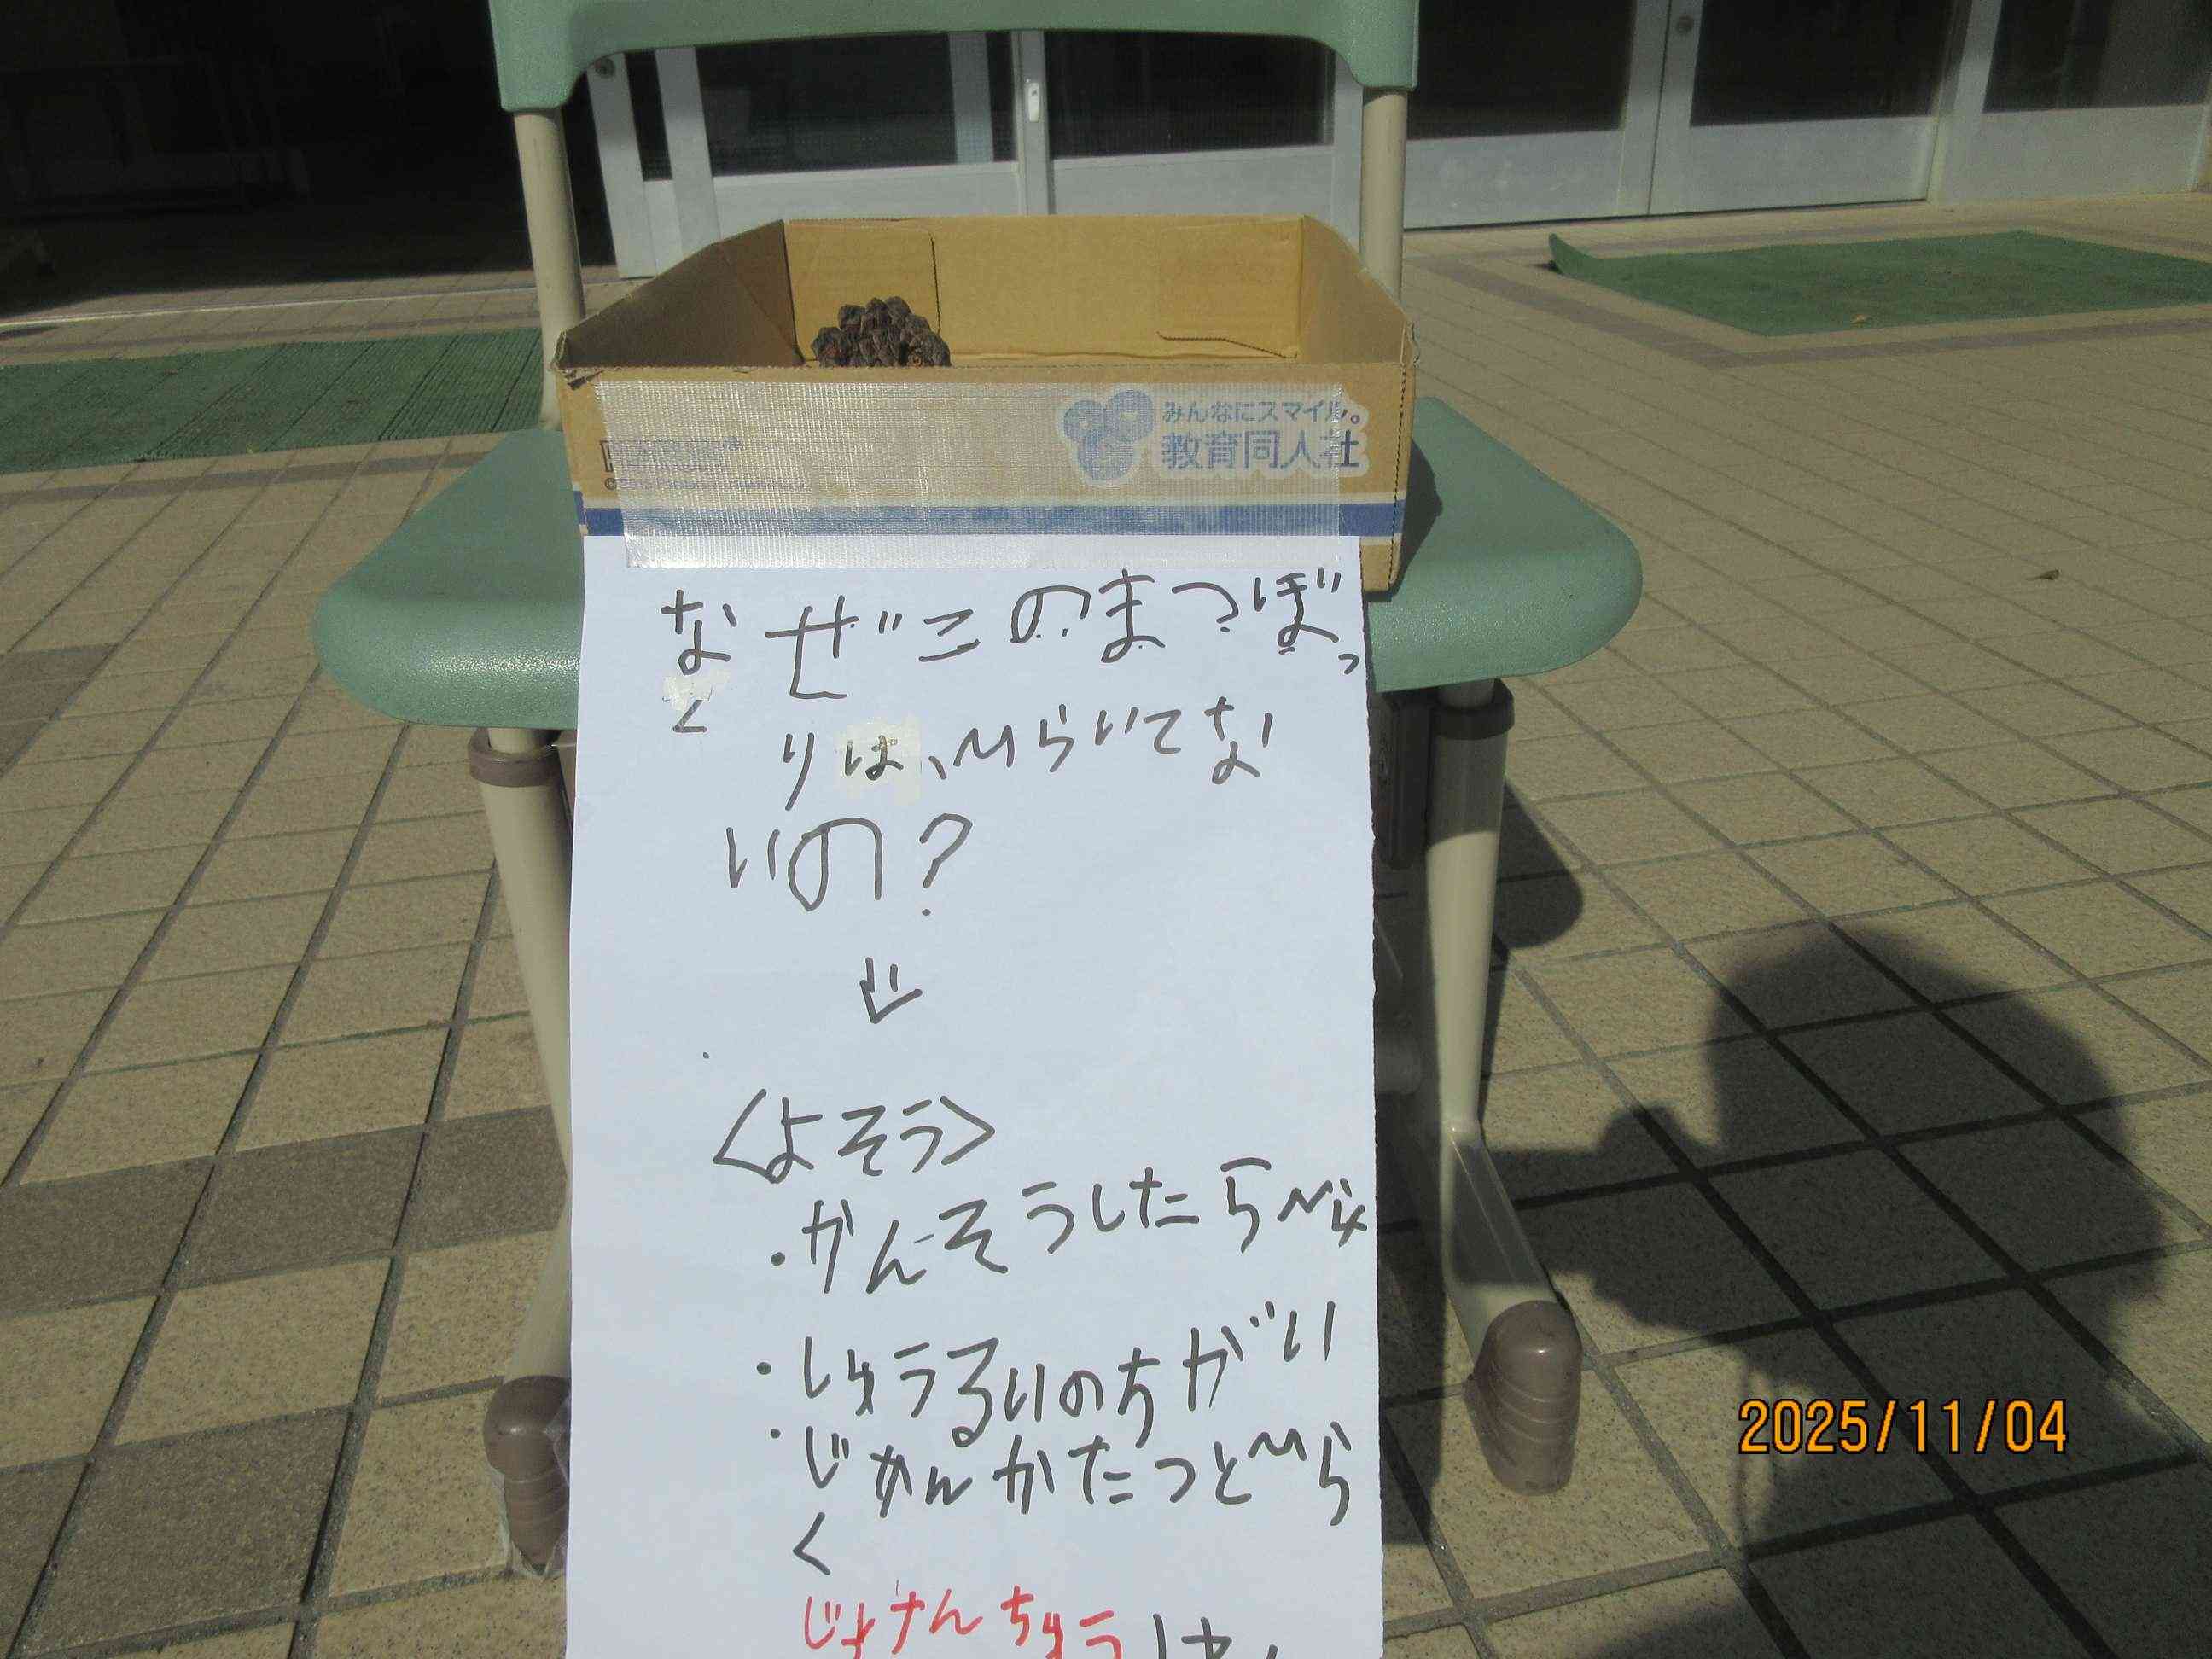 みんなにスマイル。
教育同人社
なぜこのまつぼっ
くりは、ひらいてな
いの?
<よそう>
・かんそうしたらひら
・しゅうるいのちがい
・じかんがたつとひら
く
ちゅう
2025/11/04